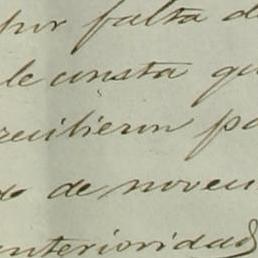 por falta d
le consta qu
recibieron pa
do de noveu
anterioridad